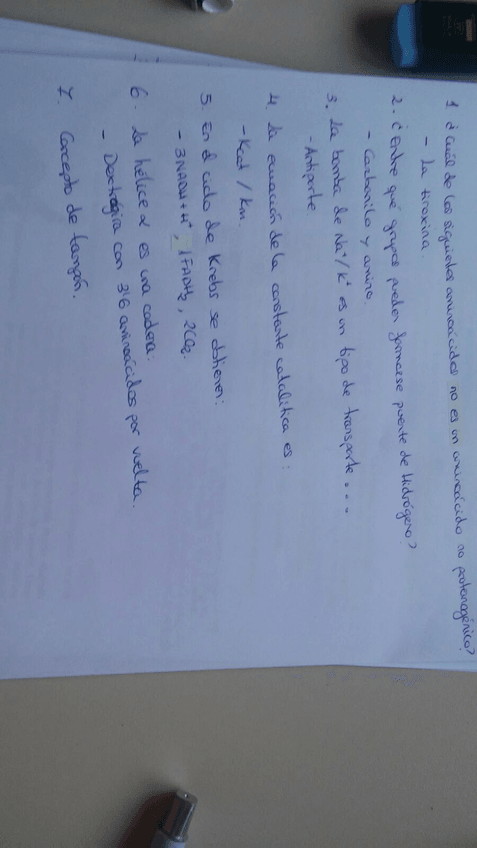 1. ¿Cuál de los siguientes aminoácidos no es un aminoácido no proteinogénico?
- La tiroxina.
2. ¿Entre qué grupos pueden formarse puente de Hidrógeno?
- Carbonilo y amino.
3. La bomba de Na⁺/K⁺ es un tipo de transporte...
- Antiporte
4. La ecuación de la constante catalítica es:
- Kcat / Km.
5. En el ciclo de Krebs se obtienen:
- 3NADH+H⁺, 1FADH₂, 2CO₂.
6. La hélice α es una cadena:
- Dextrógira con 3'6 aminoácidos por vuelta.
7. Concepto de tampón.